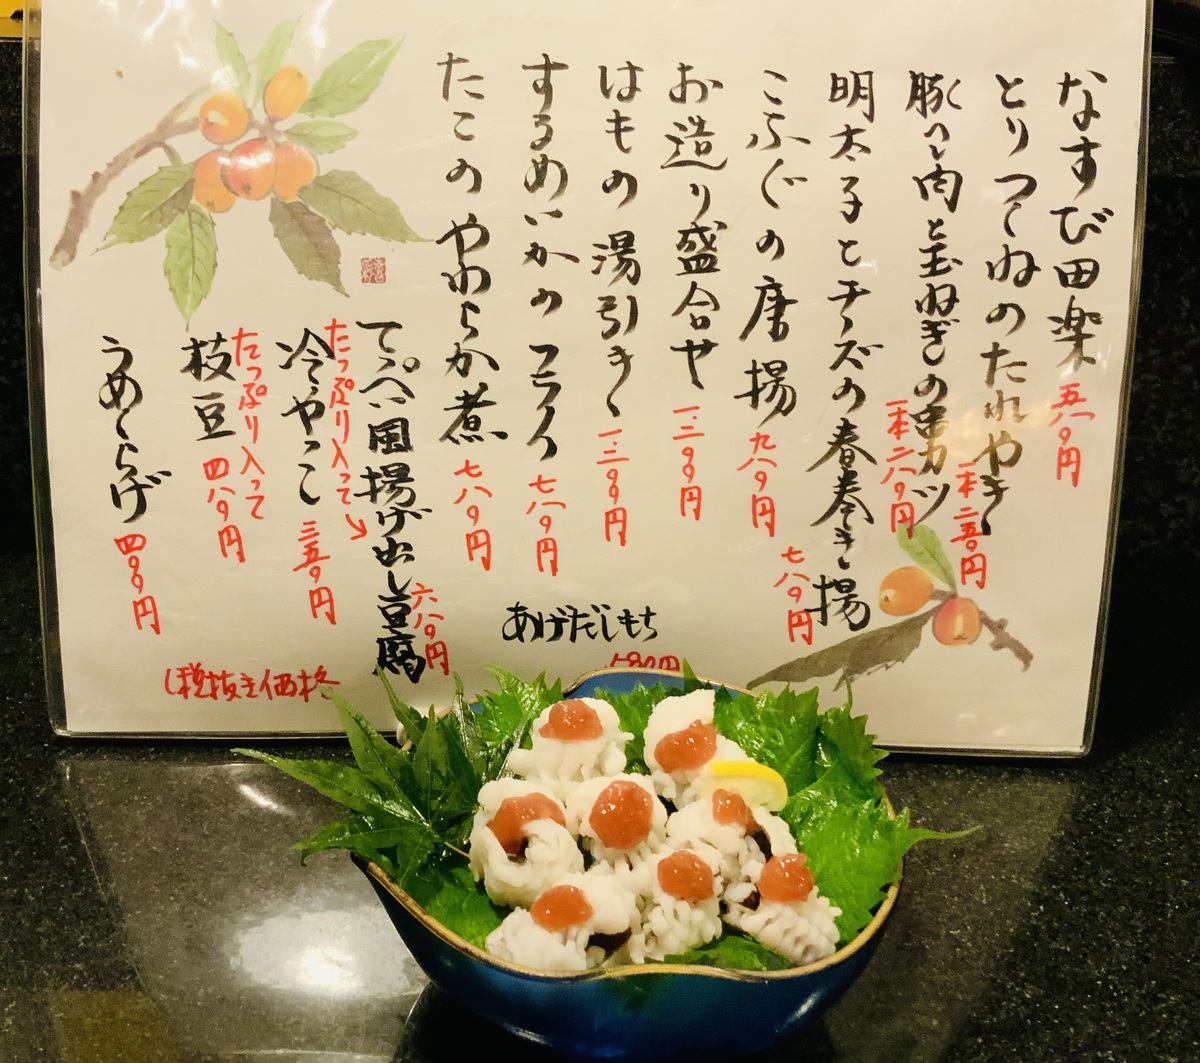 なすび田楽 五八〇円
とりつくねのたれやき 一本二五〇円
豚バラ肉と玉ねぎの串カツ 一本二八〇円
明太子とチーズの春巻き揚 七八〇円
こふぐの唐揚 九八〇円
お造り盛合せ
はもの湯引き
するめいかのフライ 七八〇円
たこのやわらか煮 七八〇円
てっぺい風揚げ出し豆腐 六八〇円
たっぷり入って
冷やっこ 三五〇円
たっぷり入って
枝豆 四八〇円
うめくらげ 四〇〇円
あげだしもち
(税抜き価格